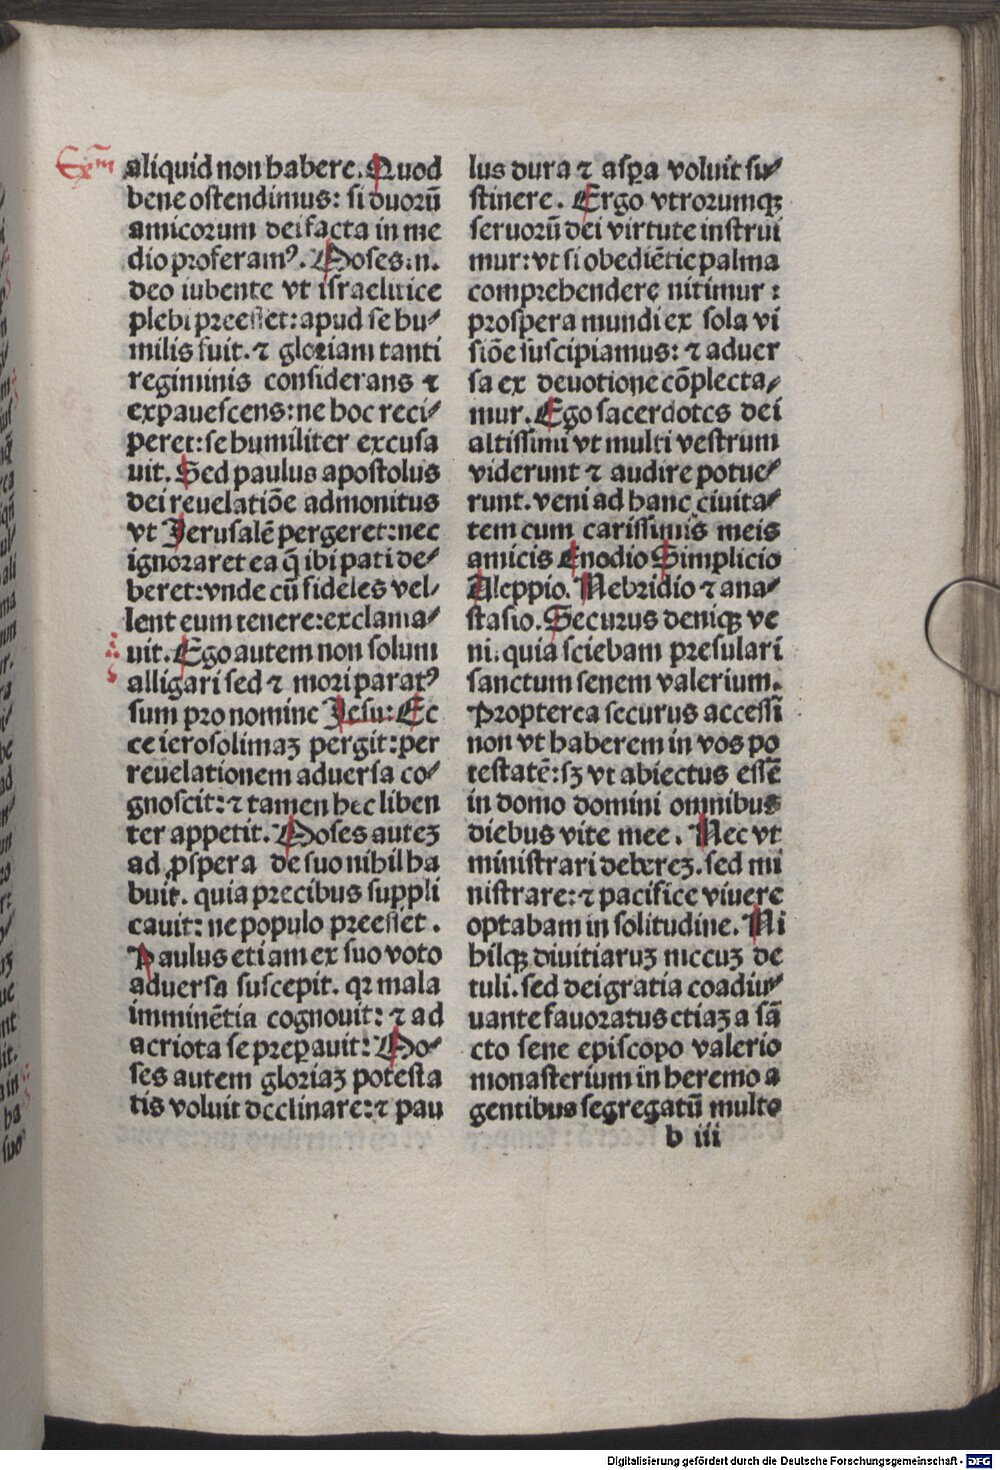 Exm
aliquid non habere. Quod
bene ostendimus: si duorū
amicorum dei facta in me
dio proferamꝰ. Moses .n.
deo iubente vt israelitice
plebi preesset: apud se hu⸗
milis fuit. ⁊ gloriam tanti
regiminis considerans ⁊
expauescens: ne hoc reci⸗
peret: se humiliter excusa
uit. Sed paulus apostolus
dei reuelatiōe admonitus
vt Jerusalē pergeret: nec
ignoraret ea q̄ ibi pati de⸗
beret: vnde cū fideles vel⸗
lent eum tenere: exclama⸗
uit. Ego autem non solum
alligari sed ⁊ mori paratꝰ
sum pro nomine Jesu: Ec
ce ierosolimaꝫ pergit: per
reuelationem aduersa co⸗
gnoscit: ⁊ tamen hec liben
ter appetit. Moses auteꝫ
ad ꝓspera de suo nihil ha
buit. quia precibus suppli
cauit: ne populo preesset.
Paulus etiam ex suo voto
aduersa suscepit. qꝛ mala
imminētia cognouit: ⁊ ad
acriota se preꝑauit: Mo⸗
ses autem gloriaꝫ potesta
tis voluit declinare: ⁊ pau
lus dura ⁊ asꝑa voluit su⸗
stinere. Ergo vtrorumqꝫ
seruorū dei virtute instrui
mur: vt si obediētie palma
comprehendere nitimur:
prospera mundi ex sola vi
siōe suscipiamus: ⁊ aduer
sa ex deuotione cōplecta⸗
mur. Ego sacerdotes dei
altissimi vt multi vestrum
viderunt ⁊ audire potue⸗
runt. veni ad hanc ciuita⸗
tem cum carissimis meis
amicis Enodio Simplicio
Aleppio. Nebridio ⁊ ana⸗
stasio. Securus deniqꝫ ve
ni. quia sciebam presulari
sanctum senem valerium.
Propterea securus accessi
non vt haberem in vos po
testatē: sꝫ vt abiectus essē
in domo domini omnibus
diebus vite mee. Nec vt
ministrari debereꝫ. sed mi
nistrare: ⁊ pacifice viuere
optabam in solitudine. Ni
hilqꝫ diuitiaruꝫ mecuꝫ de
tuli. sed dei gratia coadiu⸗
uante fauoratus etiaꝫ a sā
cto sene episcopo valerio
monasterium in heremo a
gentibus segregatū multo
b iii
Digitalisierung gefördert durch die Deutsche Forschungsgemeinschaft - DFG